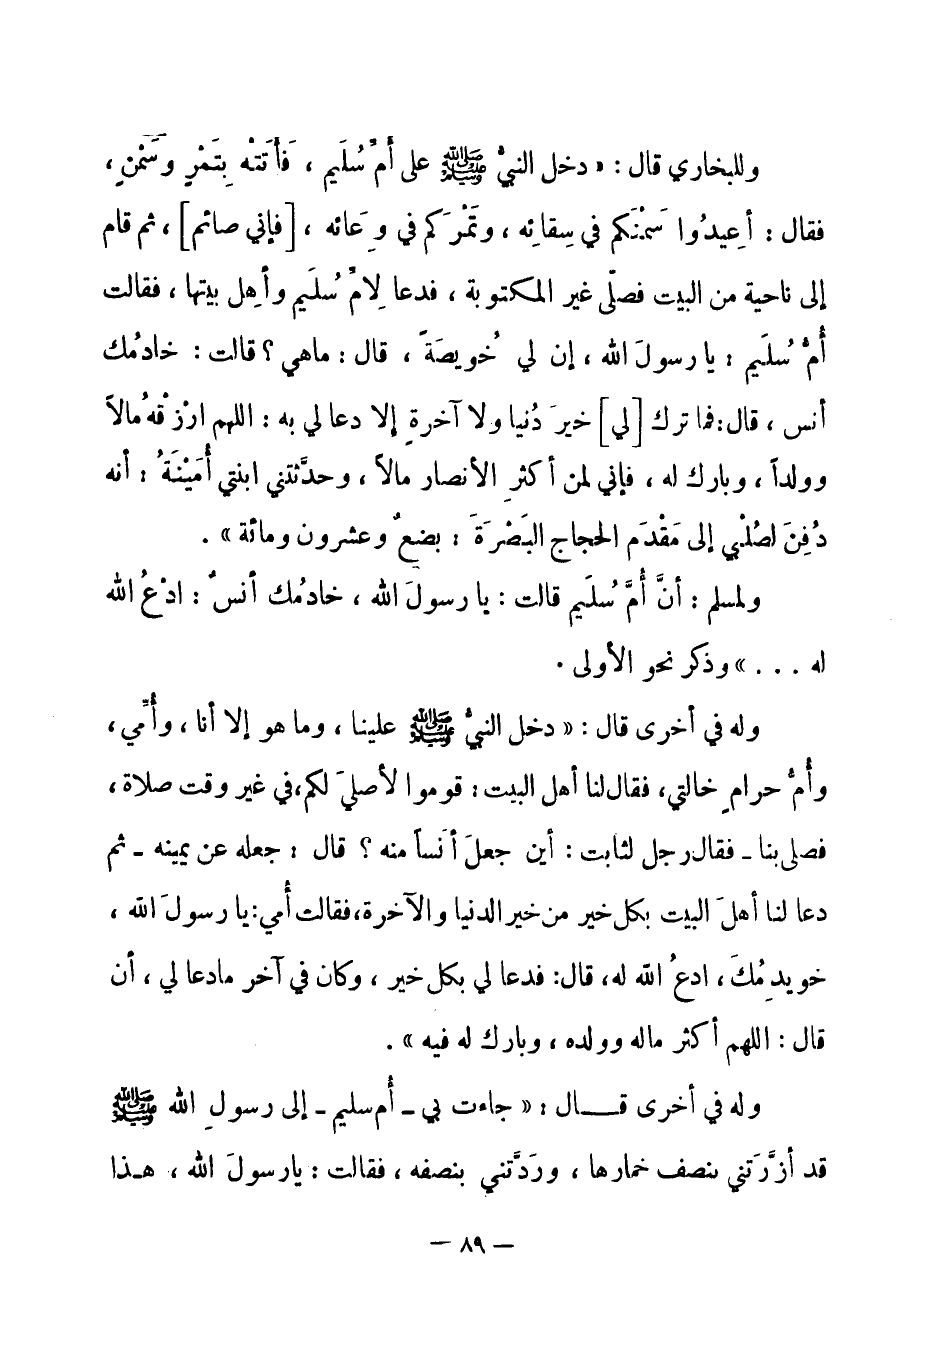 وللبخاري قال : « دخل النبيُّ ﷺ على أمِّ سُلَيم ، فَأَتَتْه بِتَمْرٍ وسَمْنٍ ،
فقال : أعِيدُوا سَمْنَكم في سِقائه ، وتَمْرَكم في وِعَائه ، [فإني صائم] ، ثم قام
إلى ناحية من البيت فصلّى غير المكتوبة ، فدعا لِأمِّ سُلَيم وأهلِ بيتها ، فقالت
أُمُّ سُلَيم : يا رسولَ الله ، إن لي خُويصَةً ، قال : ماهي ؟ قالت : خادمُك
أنس ، قال: فما ترك [لي] خيرَ دُنيا ولا آخرةٍ إلا دعا لي به : اللهم ارْزُقْهُ مالاً
وولداً ، وبارك له ، فإني لمن أكثرِ الأنصار مالاً ، وحدَّثتني ابنتي أُمَيْنَةُ : أنه
دُفِنَ لصُلْبي إلى مَقْدَم الحجاج البَصْرَةَ : بضعٌ وعشرون ومائة » .
ولمسلم : أنَّ أُمَّ سُلَيم قالت : يا رسولَ الله ، خادمُك أنسٌ : ادْعُ الله
له . . . » وذكر نحو الأولى .
وله في أخرى قال : « دخل النبيُّ ﷺ علينا ، وما هو إلا أنا ، وأُمِّي ،
وأُمُّ حرامٍ خالتي ، فقال لنا أهل البيت : قوموا لأصليَ لكم، في غير وقت صلاة ،
فصلى بنا ـ فقال رجل لثابت : أين جعلَ أنَساً منه ؟ قال : جعله عن يمينه ـ ثم
دعا لنا أهلَ البيت بكل خير من خير الدنيا والآخرة، فقالت أُمي: يا رسولَ الله ،
خويدِمُكَ ، ادعُ الله له، قال: فدعا لي بكل خير ، وكان في آخر مادعا لي ، أن
قال : اللهم أكثر ماله وولده ، وبارك له فيه » .
وله في أخرى قـــال : « جاءت بي ـ أُم سليم ـ إلى رسولِ الله ﷺ
قد أزَّرَتني بنصف خمارها ، وردَّتني بنصفه ، فقالت : يارسولَ الله ، هـذا
— ٨٩ —